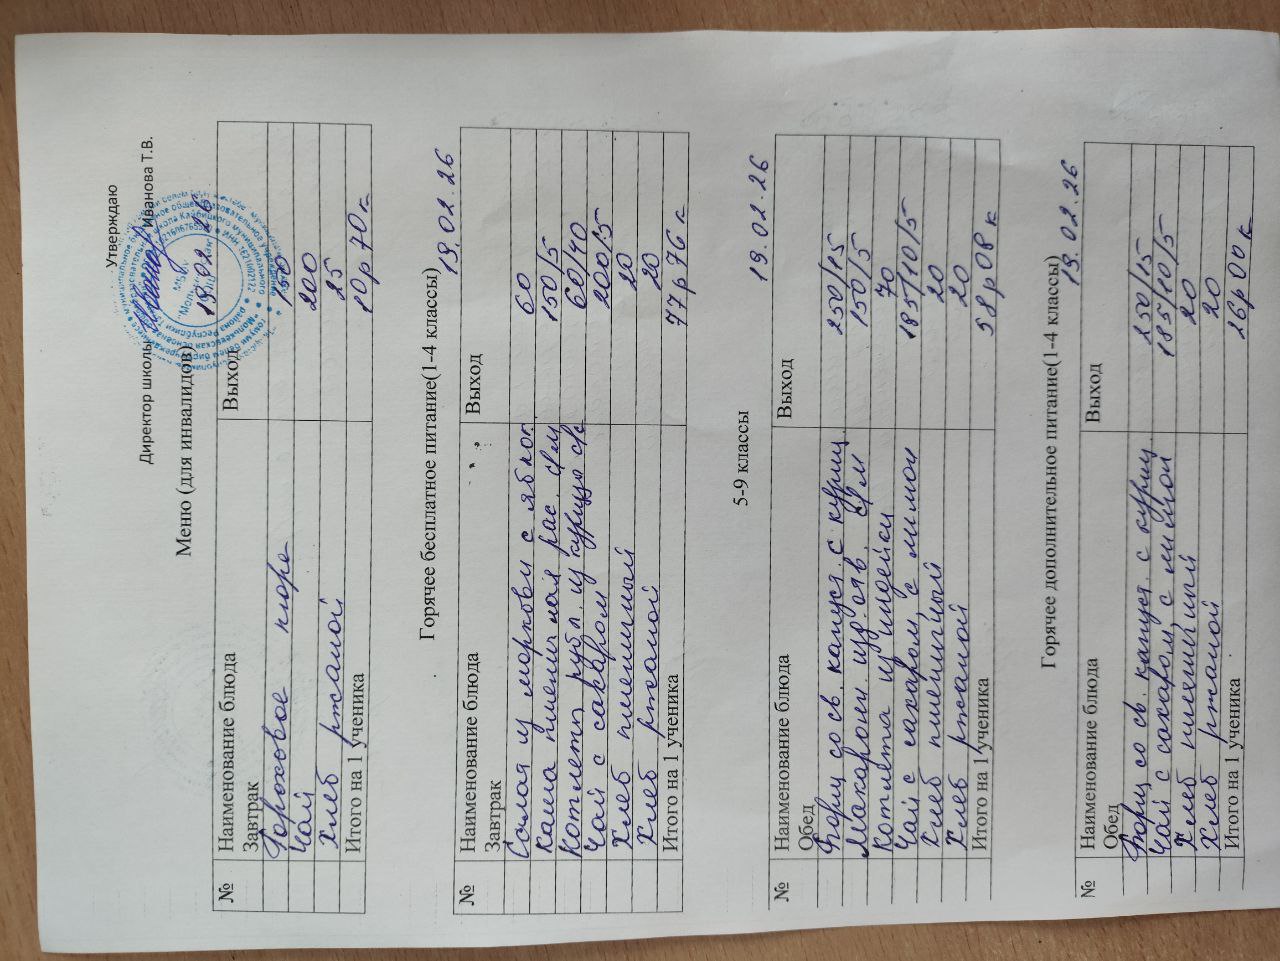 Утверждаю
Директор школы Иванова Т.В.
Меню (для инвалидов) 19.02.26
№ Наименование блюда Выход
Завтрак
Гороховое пюре 150
Чай 200
Хлеб ржаной 25
Итого на 1 ученика 10р 70к
Горячее бесплатное питание(1-4 классы)
19.02.26
№ Наименование блюда Выход
Завтрак
Салат из моркови с яблок. 60
Каша пшеничная рас. с/м 150/5
Котлеты рубл. из курицы с/с 60/40
Чай с сахаром 200/5
Хлеб пшеничный 20
Хлеб ржаной 20
Итого на 1 ученика 77р 76к
5-9 классы
19.02.26
№ Наименование блюда Выход
Обед
Борщ со св. капуст. с куриц. 250/15
Макарон. изд. отв. с/м 150/5
Котлета из индейки 70
Чай с сахаром, с лимон 185/10/5
Хлеб пшеничный 20
Хлеб ржаной 20
Итого на 1 ученика 58р 08к
Горячее дополнительное питание(1-4 классы)
19.02.26
№ Наименование блюда Выход
Обед
Борщ со св. капуст. с куриц. 250/15
Чай с сахаром, с лимон 185/10/5
Хлеб пшеничный 20
Хлеб ржаной 20
Итого на 1 ученика 26р 00к